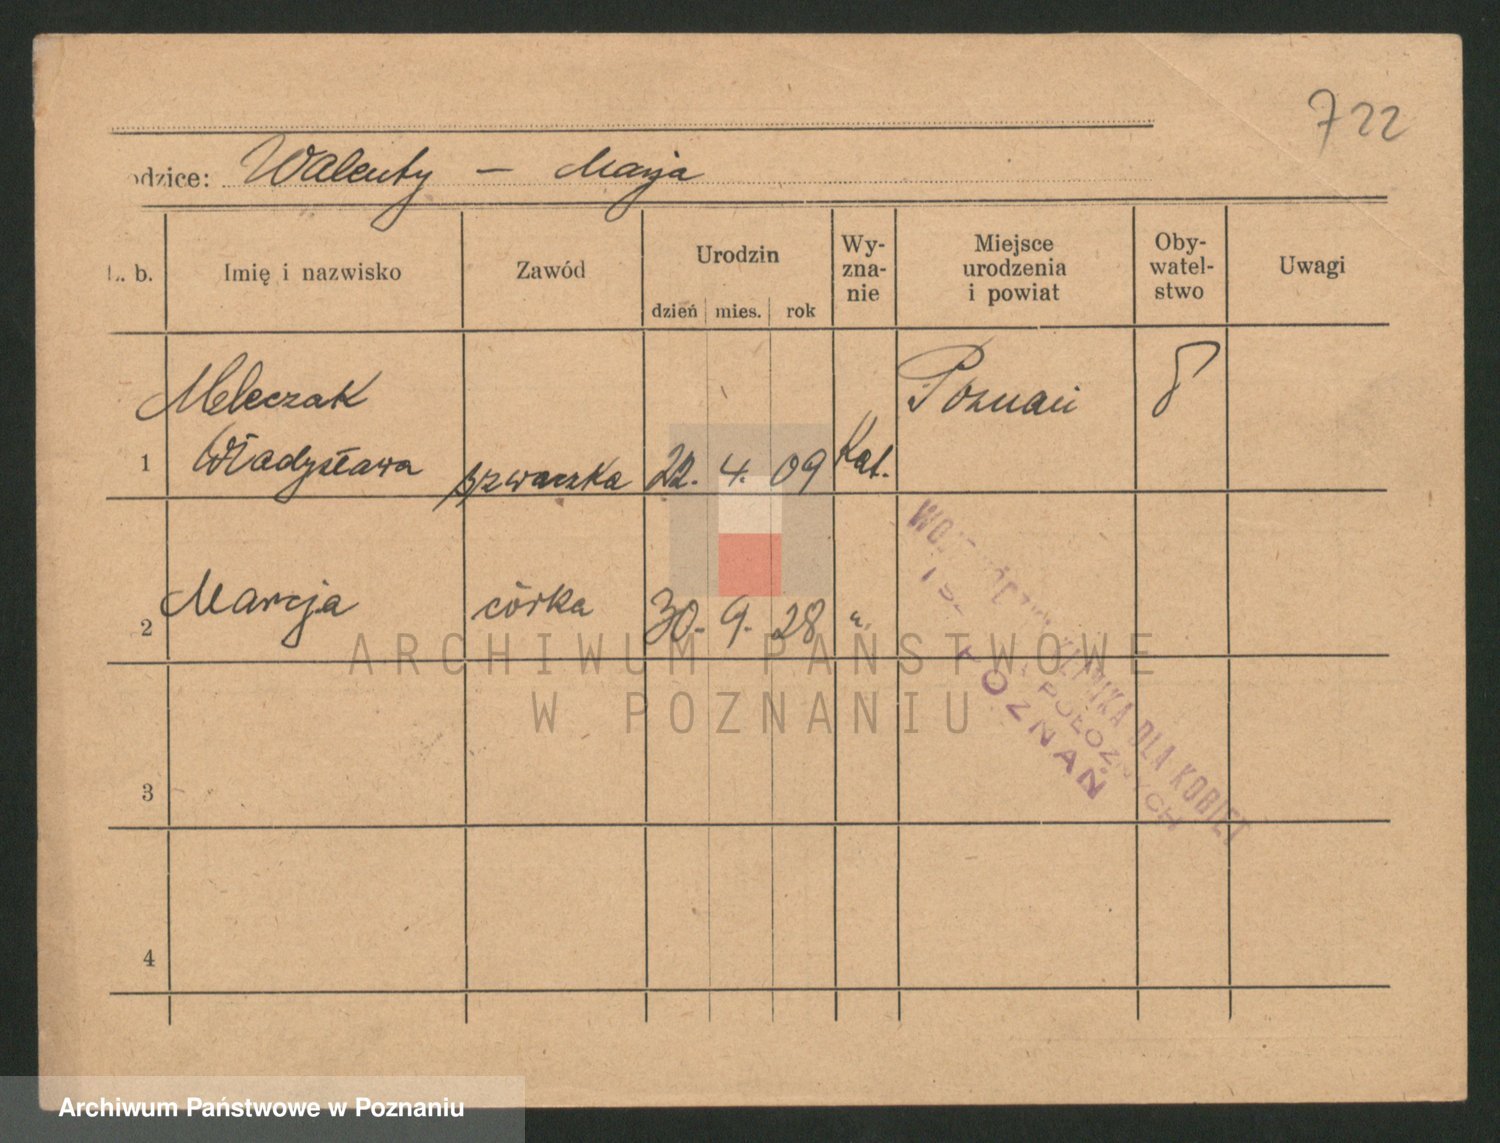 722
odzice: Walenty – Marja
L. b. Imię i nazwisko Zawód Urodzin dzień mies. rok Wy-zna-nie Miejsce urodzenia i powiat Oby-watel-stwo Uwagi
Meleczak Poznań
1 Władysława szwaczka 22. 4. 09 Kat.
2 Marcja córka 30. 9. 28 "
3
4
KLINIKA DLA KOBIET
POŁOŻNYCH
POZNAŃ
ARCHIWUM PAŃSTWOWE
W POZNANIU
Archiwum Państwowe w Poznaniu